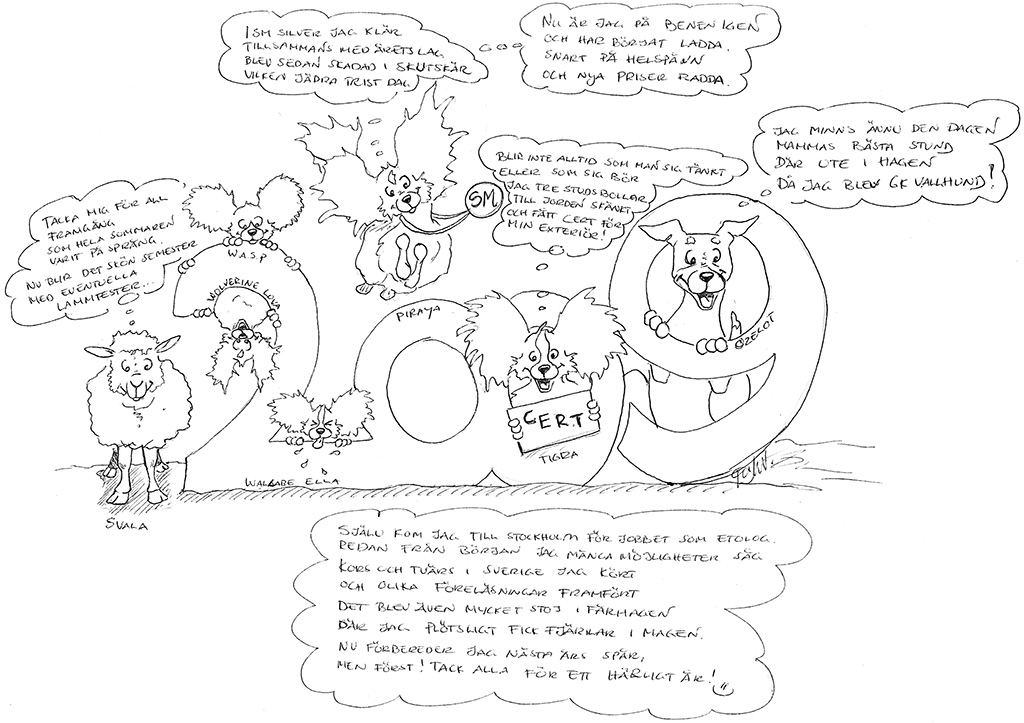 I SM SILVER JAG KLÄR
TILLSAMMANS MED ÅRETS LAG
BLEV SEDAN SKADAD I SKUTSKÄR
VILKEN JÄDRA TRIST DAG
NU ÄR JAG PÅ BENEN IGEN
OCH HAR BÖRJAT LADDA.
SNART PÅ HELSPÄNN
OCH NYA PRISER RADDA.
JAG MINNS ÄNNU DEN DAGEN
MAMMAS BÄSTA STUND
DÄR UTE I HAGEN
DÅ JAG BLEV GK VALLHUND!
BLIR INTE ALLTID SOM MAN SIG TÄNKT
ELLER SOM SIG BÖR
JAG TRE STUDSBOLLAR
TILL JORDEN SKÄNKT
OCH FÅTT CERT FÖR
MIN EXTERIÖR!
TACKA MIG FÖR ALL
FRAMGÅNG
SOM HELA SOMMAREN
VARIT PÅ SPRÅNG.
NU BLIR DET SKÖN SEMESTER
MED EVENTUELLA
LAMMTESTER...
SM
W.A.S.P
WOLVERINE LOVA
PIRAYA
OZELOT
CERT
TIGRA
WALLABE ELLA
SVALA
2009
SJÄLV KOM JAG TILL STOCKHOLM FÖR JOBBET SOM ETOLOG.
REDAN FRÅN BÖRJAN JAG MÅNGA MÖJLIGHETER SÅG
KORS OCH TVÄRS I SVERIGE JAG KÖRT
OCH OLIKA FÖRELÄSNINGAR FRAMFÖRT
DET BLEV ÄVEN MYCKET STOJ I FÅRHAGEN
DÄR JAG PLÖTSLIGT FICK FJÄRILAR I MAGEN.
NU FÖRBEREDER JAG NÄSTA ÅRS SPÅR,
MEN FÖRST! TACK ALLA FÖR ETT HÄRLIGT ÅR!